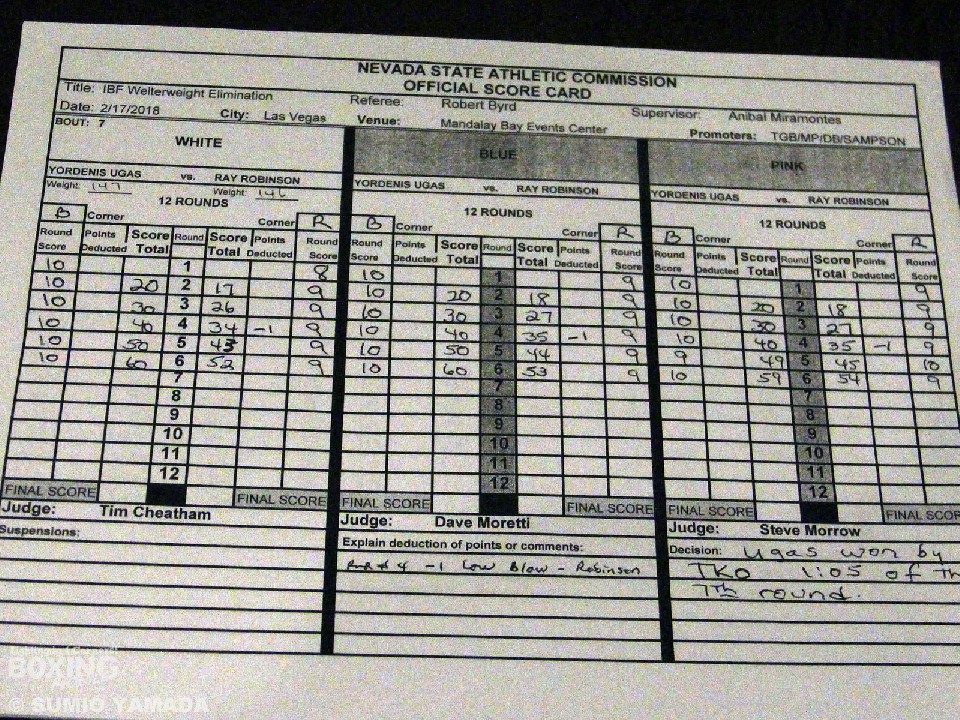 NEVADA STATE ATHLETIC COMMISSION
OFFICIAL SCORE CARD
Title: IBF Welterweight Elimination Referee: Robert Byrd Supervisor: Anibal Miramontes
Date: 2/17/2018 City: Las Vegas Venue: Mandalay Bay Events Center Promoters: TGB/MP/DB/SAMPSON
BOUT: 7
WHITE
YORDENIS UGAS vs. RAY ROBINSON
Weight: 147 Weight: 146
12 ROUNDS
B Corner Corner R
Round Score Points Deducted Score Total Round Score Total Points Deducted Round Score
10 1 8
10 20 2 17 9
10 30 3 26 9
10 40 4 34 -1 9
10 50 5 43 9
10 60 6 52 9
7
8
9
10
11
12
FINAL SCORE FINAL SCORE
Judge: Tim Cheatham
Suspensions:
BLUE
YORDENIS UGAS vs. RAY ROBINSON
12 ROUNDS
B Corner Corner R
Round Score Points Deducted Score Total Round Score Total Points Deducted Round Score
10 1 9
10 20 2 18 9
10 30 3 27 9
10 40 4 35 -1 9
10 50 5 44 9
10 60 6 53 9
7
8
9
10
11
12
FINAL SCORE FINAL SCORE
Judge: Dave Moretti
Explain deduction of points or comments:
# 4 -1 Low Blow - Robinson
PINK
YORDENIS UGAS vs. RAY ROBINSON
12 ROUNDS
B Corner Corner R
Round Score Points Deducted Score Total Round Score Total Points Deducted Round Score
10 1 9
10 20 2 18 9
10 30 3 27 9
10 40 4 35 -1 9
9 49 5 45 10
10 59 6 54 9
7
8
9
10
11
12
FINAL SCORE FINAL SCOR
Judge: Steve Morrow
Decision: Ugas won by
TKO 1:05 of Th
7th round.
BOXING
© SUMIO YAMADA